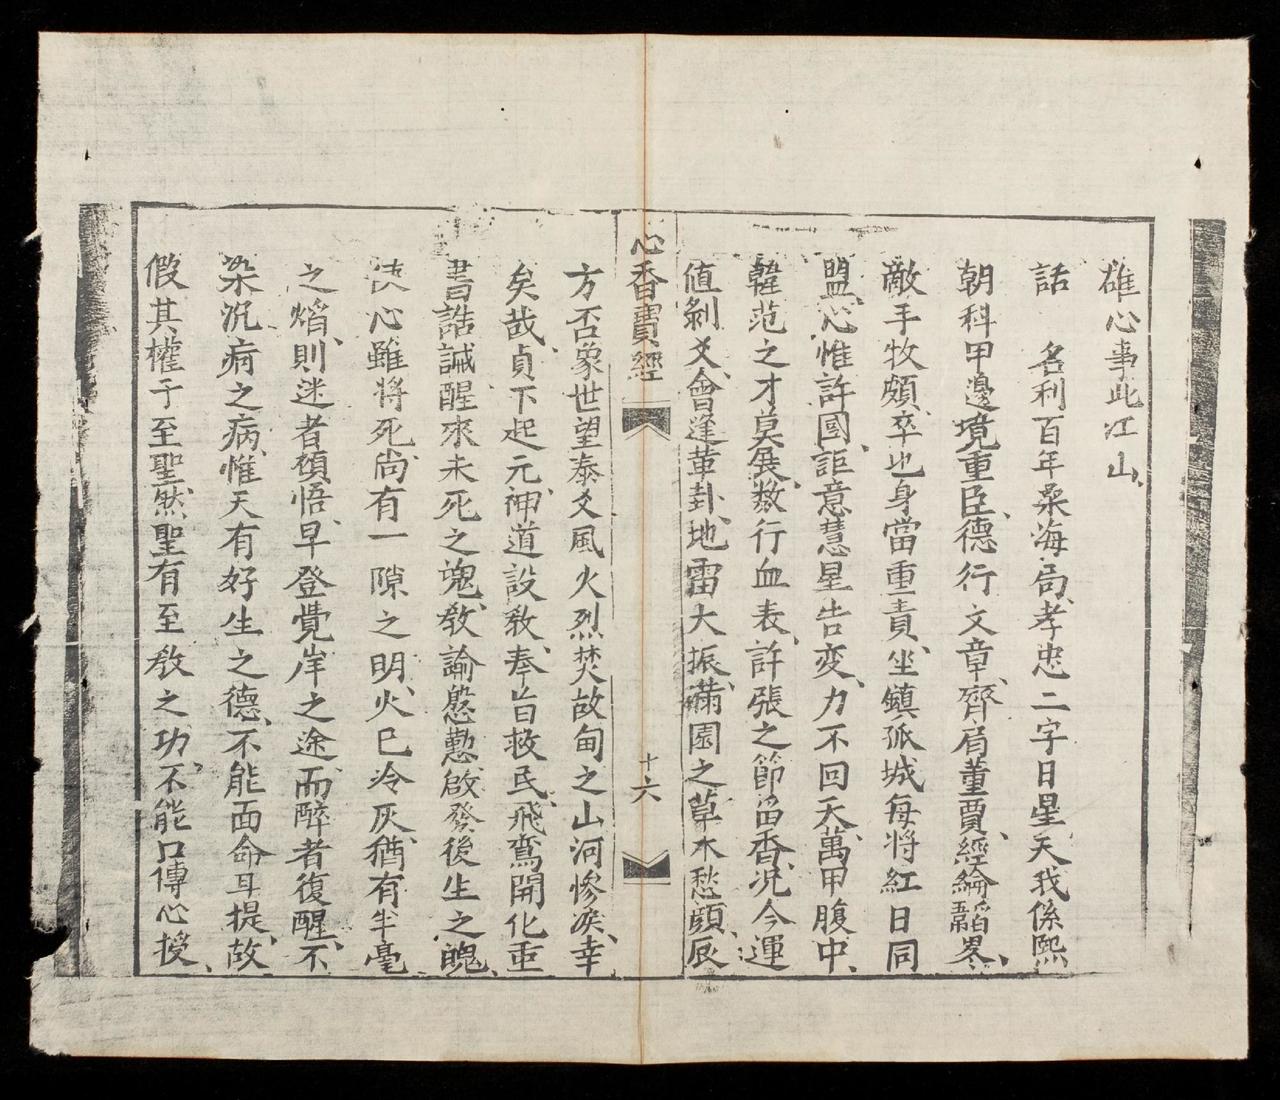 雄心事此江山、
話　名利百年桑海局、孝忠二字日星天、我係熙
朝科甲、邊境重臣、德行文章、齊肩董賈、經綸韜畧、
敵手牧頗、卒也身當重責、坐鎮孤城、每將紅日同
盟、心惟許國、詎意慧星告变、力不回天、萬甲腹中、
韓范之才莫展、数行血表、許張之節畄香、况今運
值剝爻、會逢革卦、地雷大振、滿園之草木愁顏、辰
心香寶經
十六
方否象、世望泰爻、風火烈焚、故甸之山河慘淚、幸
矣哉、貞下起元、神道設教、奉旨救民、飛鸞開化、重
書誥誡、醒來未死之魂、教諭慇懃、啟發後生之魄、
心雖將死、尚有一隙之明、火已冷灰、猶有半毫
之焰、則迷者頓悟、早登覺岸之途、而醉者復醒、不
染沉痾之病、惟天有好生之德、不能面命耳提、故
假其權于至聖、然聖有至教之功、不能口傳心授、